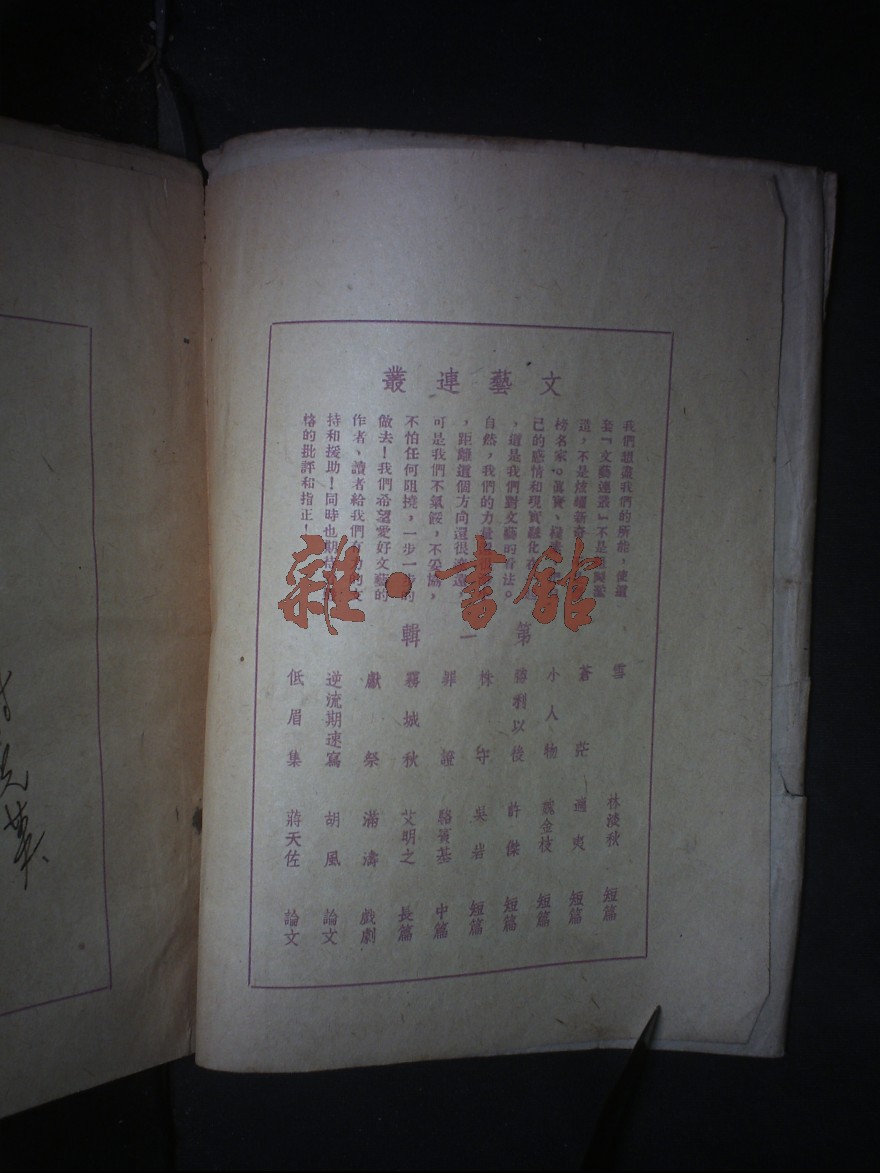 文藝連叢
我們想盡我們的所能,使這
套「文藝連叢」不是
這,不是炫耀新奇
榜名家。真實、
己的感情和現實融化在
,這是我們對文藝的看法。
自然,我們的力量
,距離這個方向還很遠
可是我們不氣餒,不妥協,
不怕任何阻撓,一步一步的
做去!我們希望愛好文藝的
作者、讀者給我們有力的支
持和援助!同時也期待
格的批評和指正!
第一輯
雪 林淡秋 短篇
蒼茫 適夷 短篇
小人物 魏金枝 短篇
勝利以後 許傑 短篇
株守 吳岩 短篇
罪證 駱賓基 中篇
霧城秋 艾明之 長篇
獻祭 滿濤 戲劇
逆流期速寫 胡風 論文
低眉集 蔣天佐 論文
雜·書館